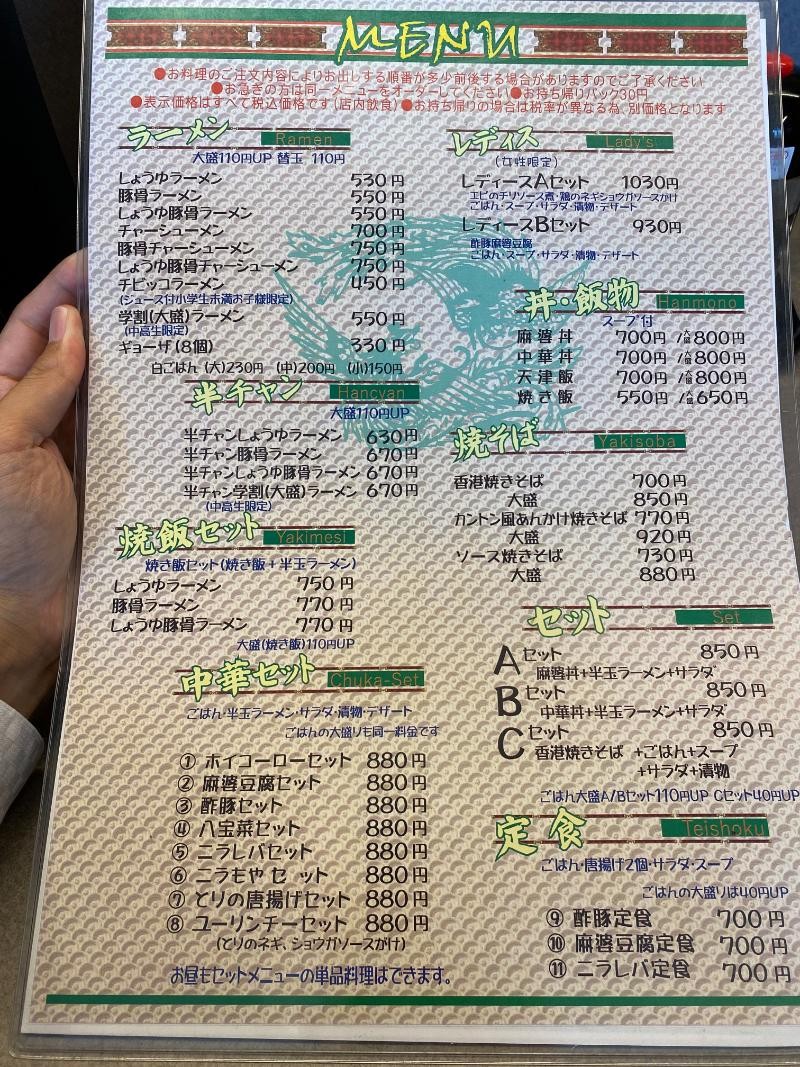 MENU
●お料理のご注文内容によりお出しする順番が多少前後する場合がありますのでご了承ください
●お急ぎの方は同一メニューをオーダーしてください●お持ち帰りパック30円
●表示価格はすべて税込価格です(店内飲食)●お持ち帰りの場合は税率が異なる為、別価格となります
ラーメン Ramen
大盛110円UP 替玉 110円
しょうゆラーメン 530円
豚骨ラーメン 550円
しょうゆ豚骨ラーメン 550円
チャーシューメン 700円
豚骨チャーシューメン 750円
しょうゆ豚骨チャーシューメン 750円
チビッコラーメン 450円
(ジュース付小学生未満お子様限定)
学割(大盛)ラーメン 550円
(中高生限定)
ギョーザ(8個) 330円
白ごはん (大)230円 (中)200円 (小)150円
半チャン Hancyan
大盛110円UP
半チャンしょうゆラーメン 630円
半チャン豚骨ラーメン 670円
半チャンしょうゆ豚骨ラーメン 670円
半チャン学割(大盛)ラーメン 670円
(中高生限定)
焼飯セット Yakimesi
焼き飯セット(焼き飯+半玉ラーメン)
しょうゆラーメン 750円
豚骨ラーメン 770円
しょうゆ豚骨ラーメン 770円
大盛(焼き飯)110円UP
中華セット Chuka-Set
ごはん・半玉ラーメン・サラダ・漬物・デザート
ごはんの大盛りも同一料金です
① ホイコーローセット 880円
② 麻婆豆腐セット 880円
③ 酢豚セット 880円
④ 八宝菜セット 880円
⑤ ニラレバセット 880円
⑥ ニラもやセット 880円
⑦ とりの唐揚げセット 880円
⑧ ユーリンチーセット 880円
(とりのネギ、ショウガソースがけ)
お昼もセットメニューの単品料理はできます。
レディス Lady's
(女性限定)
レディースAセット 1030円
エビのチリソース煮・鶏のネギショウガソースがけ
ごはん・スープ・サラダ・漬物・デザート
レディースBセット 930円
酢豚麻婆豆腐
ごはん・スープ・サラダ・漬物・デザート
丼・飯物 Hanmono
スープ付
麻婆丼 700円 /大盛800円
中華丼 700円 /大盛800円
天津飯 700円 /大盛800円
焼き飯 550円 /大盛650円
焼そば Yakisoba
香港焼きそば 700円
大盛 850円
カントン風あんかけ焼きそば 770円
大盛 920円
ソース焼きそば 730円
大盛 880円
セット Set
Aセット 850円
麻婆丼+半玉ラーメン+サラダ
Bセット 850円
中華丼+半玉ラーメン+サラダ
Cセット 850円
香港焼きそば +ごはん+スープ
+サラダ+漬物
ごはん大盛A/Bセット110円UP Cセット40円UP
定食 Teishoku
ごはん・唐揚げ2個・サラダ・スープ
ごはんの大盛りは40円UP
⑨ 酢豚定食 700円
⑩ 麻婆豆腐定食 700円
⑪ ニラレバ定食 700円